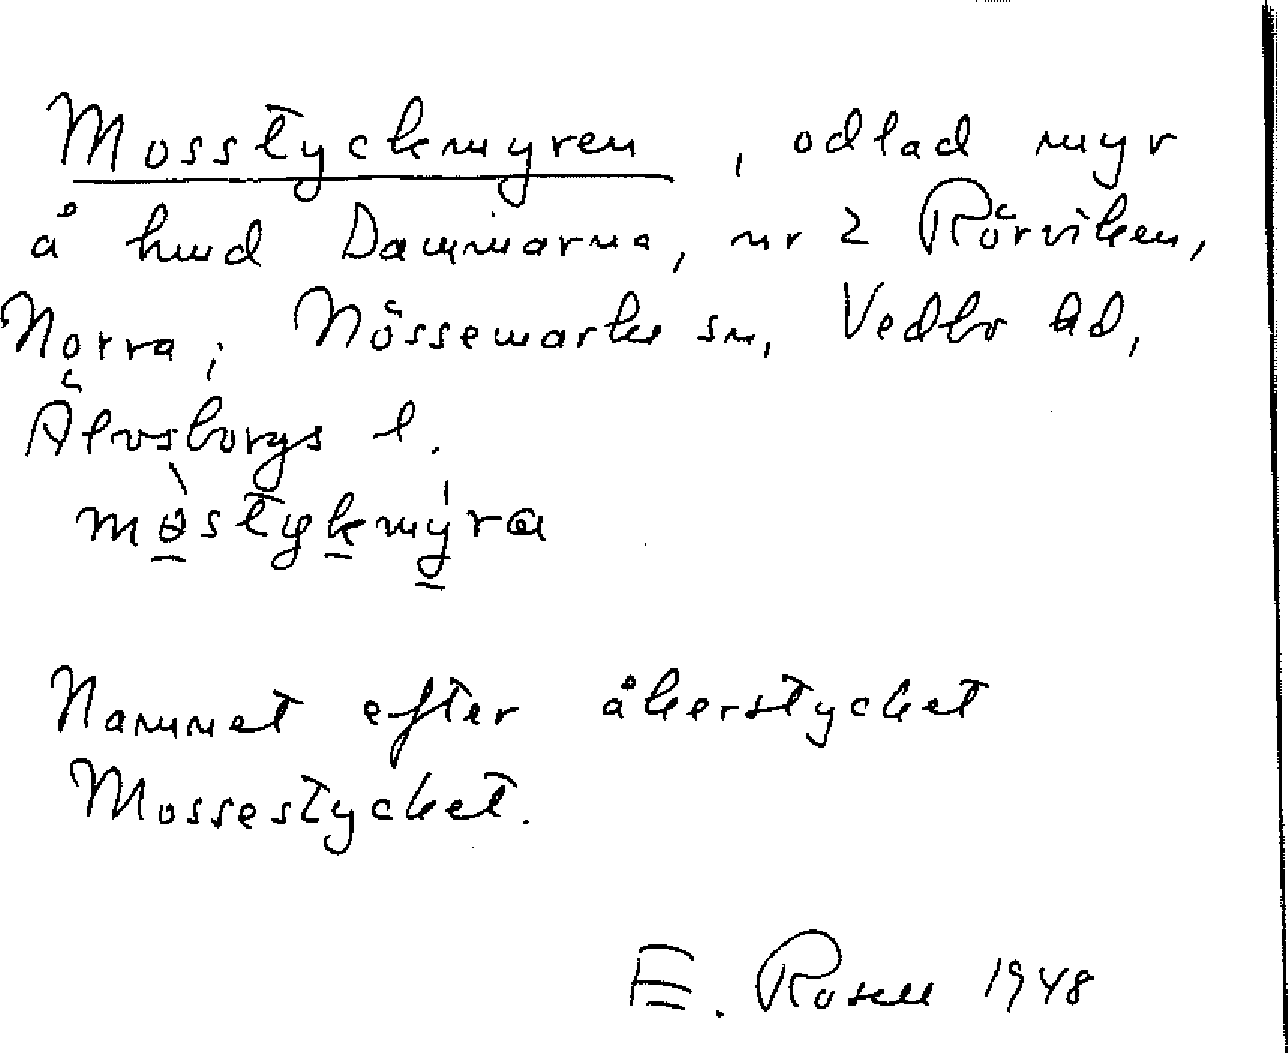 Mosstyckmyren, odlad myr
å hmd Dammarna, nr 2 Rörviken,
Norra; Nössemarks sn, Vedbo hd,
Älvsborgs l.
Namnet efter åkerstycket
Mossestycket.
E. Rosell 1948